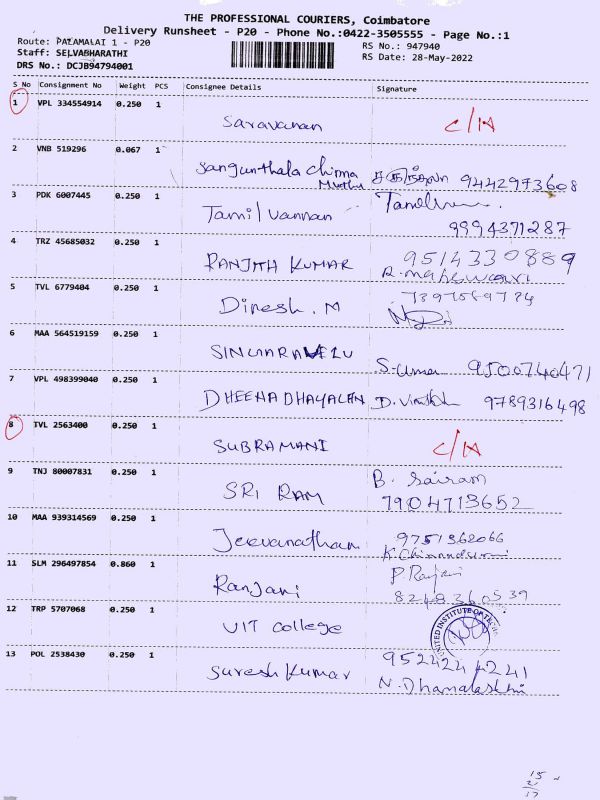 THE PROFESSIONAL COURIERS, Coimbatore
Delivery Runsheet - P20 - Phone No.:0422-3505555 - Page No.:1
Route: PALAMALAI 1 - P20
RS No.: 947940
Staff: SELVABHARATHI
RS Date: 28-May-2022
DRS No.: DCJB94794001
S No Consignment No Weight PCS Consignee Details Signature
1 VPL 334554914 0.250 1
Saravanan C/A
2 VNB 519296 0.067 1
Sangunthala Chinna
Muthu 9442973608
3 PDK 6007445 0.250 1
Tamil Vannan
9994371287
4 TRZ 45685032 0.250 1
9514330889
RANJITH KUMAR R. maheswari
5 TVL 6779404 0.250 1
Dinesh . M
6 MAA 564519159 0.250 1
SINGARAVELU
S. Uma 9500740471
7 VPL 498399040 0.250 1
DHEENADHAYALAN D. 9789316498
8 TVL 2563400 0.250 1
SUBRAMANI C/A
9 TNJ 80007831 0.250 1
B. Sairam
SRI RAM 7904713652
10 MAA 939314569 0.250 1
9751362066
Jeevanatham
11 SLM 296497854 0.860 1
P Ranjani
Ranjani
8248360539
12 TRP 5707068 0.250 1
UIT College
UNITED INSTITUTE OF
13 POL 2538430 0.250 1
9522444241
Suresh Kumar
15
2
17